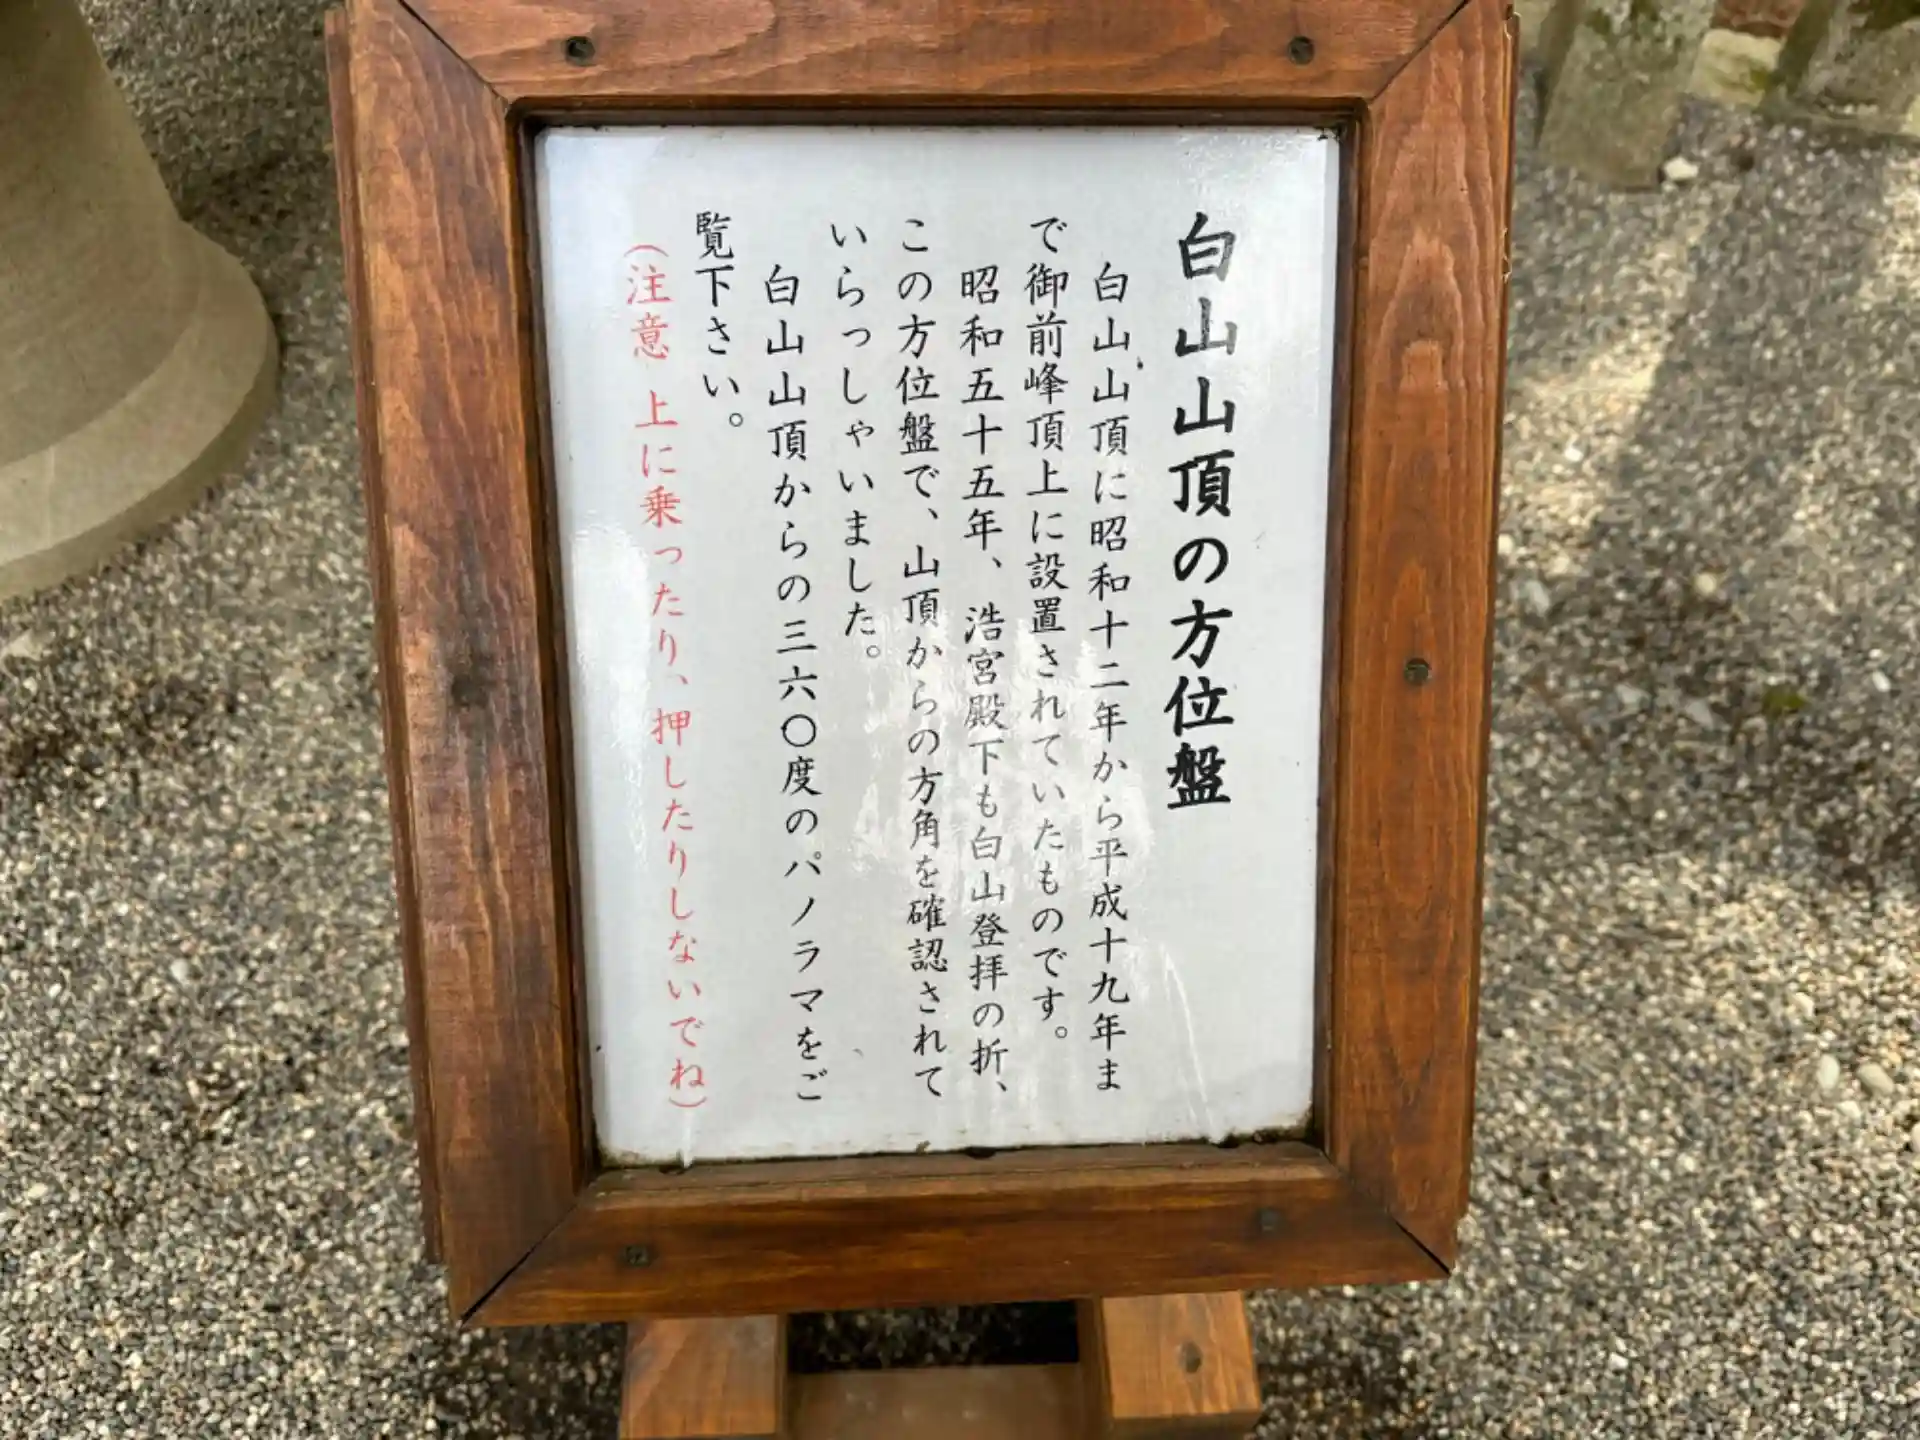 白山山頂の方位盤
白山山頂に昭和十二年から平成十九年ま
で御前峰頂上に設置されていたものです。
昭和五十五年、浩宮殿下も白山登拝の折、
この方位盤で、山頂からの方角を確認されて
いらっしゃいました。
白山山頂からの三六〇度のパノラマをご
覧下さい。
（注意 上に乗ったり、押したりしないでね）